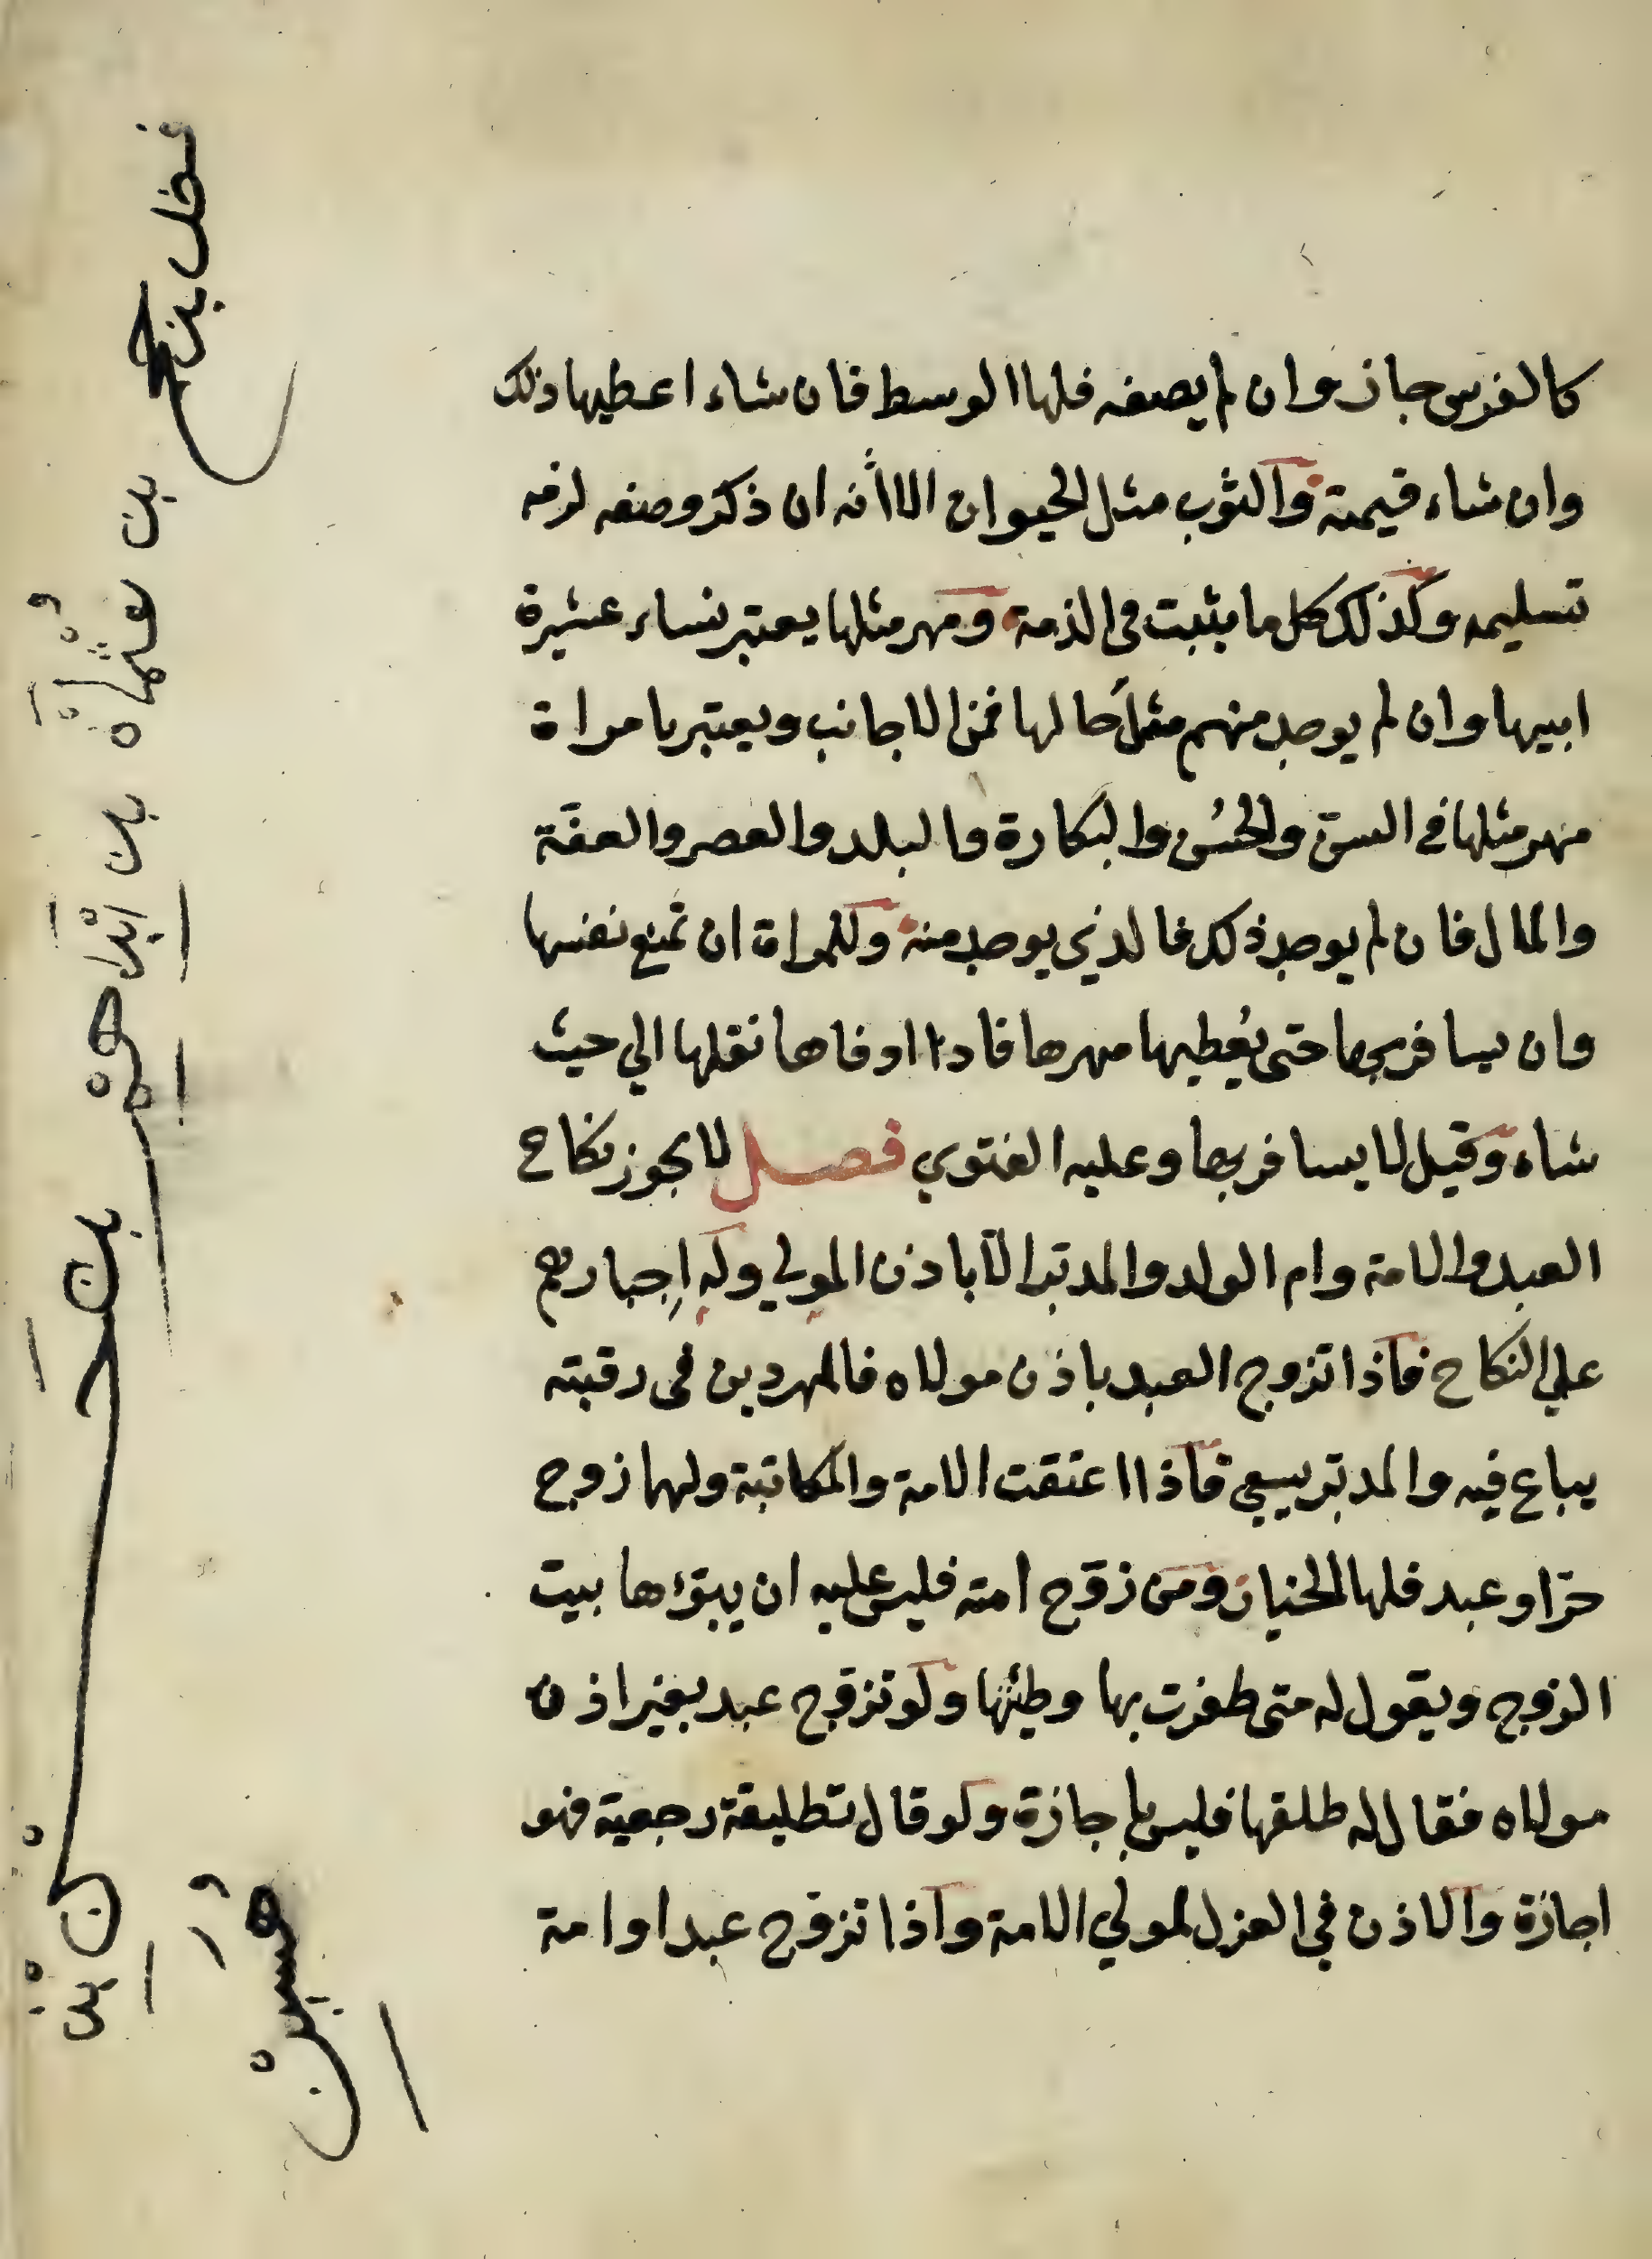 كالفرس جاز وان لم يصفه فلها الوسط فان شاء اعطيها ذلك
وان شاء قيمته والثوب مثل الحيوان الا أنه ان ذكر وصفه لزمه
تسليمه وكذلك كل ما يثبت في الذمة ومهر مثلها يعتبر نساء عشيرة
ابيها وان لم يوجد منهم مثل حالها فمن الاجانب ويعتبر بامراة
مهر مثلها في السن والحُسن والبكارة والبلد والعصر والعفة
والمال فان لم يوجد ذلك فالذي يوجد منه وللمراة ان تمنع نفسها
وان يسافر بها حتى يُعطيها مهرها فاذا اوفاها نقلها الي حيث
شاء وقيل لا يسافر بها وعليه الفتوي فصل لا يجوز نكاح
العبد والامة وام الولد والمدبر الا باذن المولي وله اِجبارهم
علي النكاح فاذا تزوج العبد باذن مولاه فالمهر دين في رقبته
يباع فيه والمدبر يسعي فاذا اعتقت الامة والمكاتبة ولهما زوج
حرّ او عبد فلها الخيار ومن زوّج امته فليس عليه ان يبوّءها بيت
الزوج ويقول له متى ظفرت بها وطئتها ولو تزوّج عبد بغير اذن
مولاه فقال له طلقها فليس بإجازة ولو قال تطليقة رجعية فهو
اجازة والاذن في العزل لمولي الامة واذا تزوّج عبد او امة
بن عثمان بن ابراهيم
بن
بن
حسين